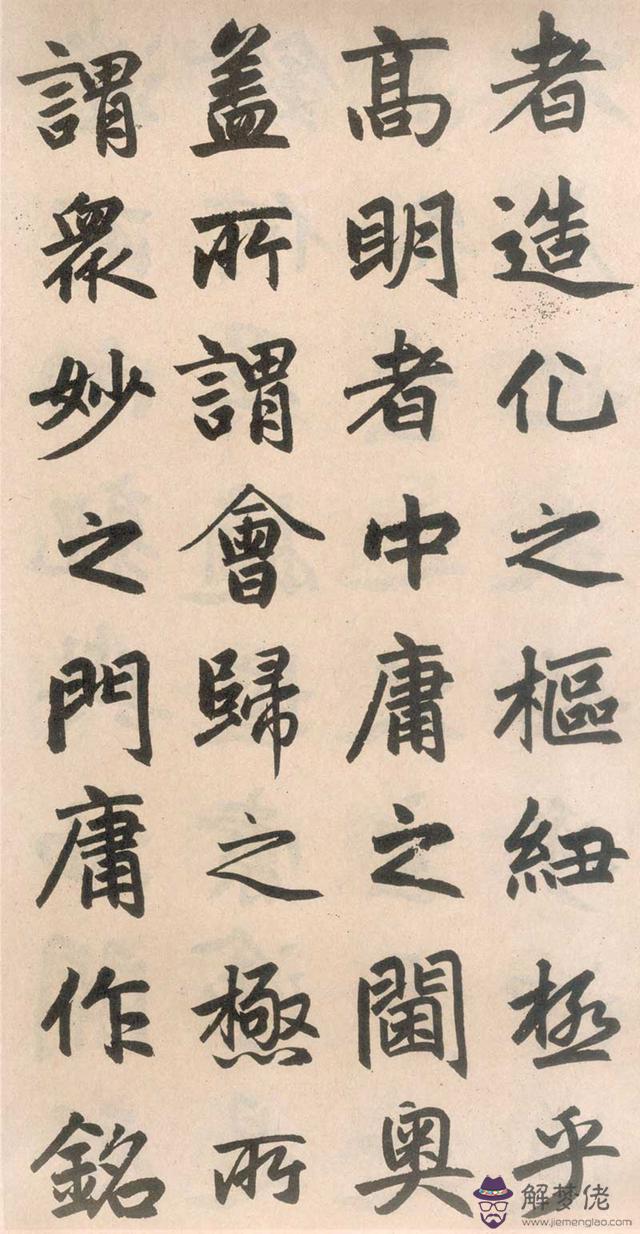 者造化之樞紐極乎
髙明者中庸之閫奥
盖所謂會歸之極所
謂衆妙之門庸作銘
解梦佬
www.jiemenglao.com